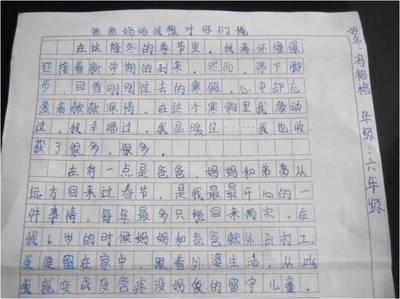 爸爸妈妈我想对你们说
在这隆冬的季节里，我满怀憧憬
迎接着新学期的到来。然而，停下脚
步，回首刚刚过去的寒假，心中却充
满着酸酸深情。在这个寒假里我感动
过，我幸福过，我品味过……我也收
获了很多，很多。
在有一点是爸爸，妈妈和弟弟从
远方回来过春节，是我最最开心的一
件事情，每年最多只能回来两次，在
我6岁的时候妈妈和爸爸就外出打工，
我便留在家中，跟着外婆生活，从此
我就变成没爸疼没妈爱的留守儿童。
姓名：冯格格 年级：六年级